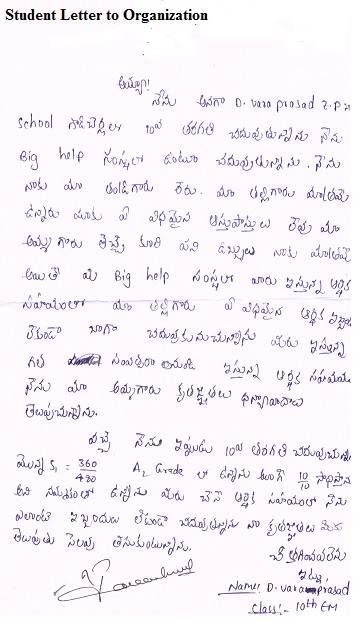 Student Letter to Organization
అయ్యా!!
నేను అనగా D. vara prasad Z.P.H
school గూడిచెర్లలో 10వ తరగతి చదువుతున్నాను నేను
Big help సంస్థలో ఉంటూ చదువుతున్నాను. నేను
నాకు మా తండ్రిగారు లేరు. మా తల్లిగారు మాత్రమే
ఉన్నారు మాకు ఏ విధమైన ఆస్తుపాస్తులు లేవు మా
అమ్మ గారు తెచ్చే కూలి పని డబ్బులు నాకు మాత్రమే
అయితే ఈ Big help సంస్థలో వారు ఇస్తున్న ఆర్థిక
సహాయంలో మా తల్లిగారు ఏ విధమైన ఆర్థిక
లేకుండా బాగా చదువుకునుచున్నాను మీరు ఇస్తున్న
గత సంవత్సరం నుండి ఇస్తున్న ఆర్థిక సహాయము
నేను మా అమ్మగారు కృతజ్ఞతలు ధన్యావాదాలు
తెలుపుచున్నాను.
వచ్చే నేను ఇప్పుడు 10వ తరగతి చదువుచున్నాను
మొన్న S1 = 360/480 A2 Grade లో ఉన్నాను 10/10
ఉన్నాను మీరు చేసే ఆర్థిక సహాయంలో నేను
ఎలాంటి ఇబ్బందులు లేకుండా చదువుతున్నాను నా కృతజ్ఞతలు మీకు
తెలుపుతు సెలవు తీసుకుంటున్నాను.
చిత్తగించవలెను
ఇట్లు,
Name: D. varaprasad
class:- 10th EM